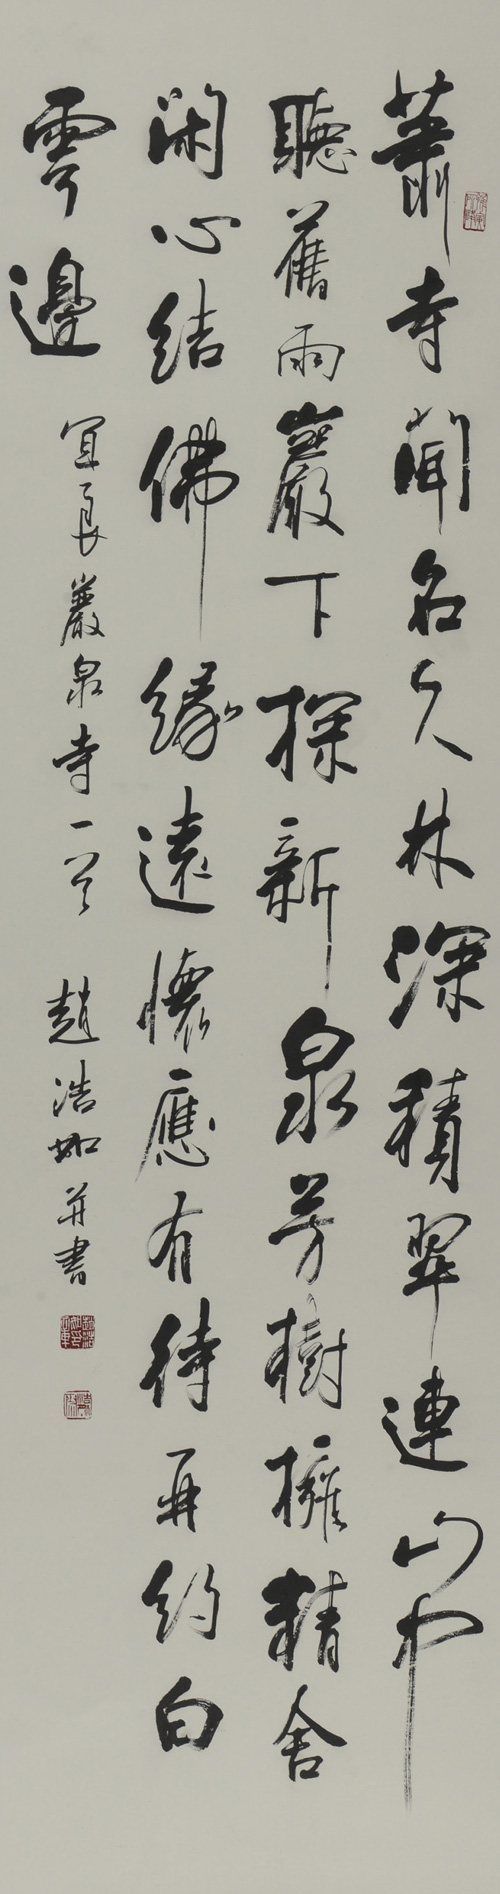 蕭寺聞名久林深積翠連山中
聽舊雨巖下探新泉芳樹擁精舍
閑心結佛緣遠懷應有待再約白
雲邊
宜良巖泉寺一首 趙浩如并書